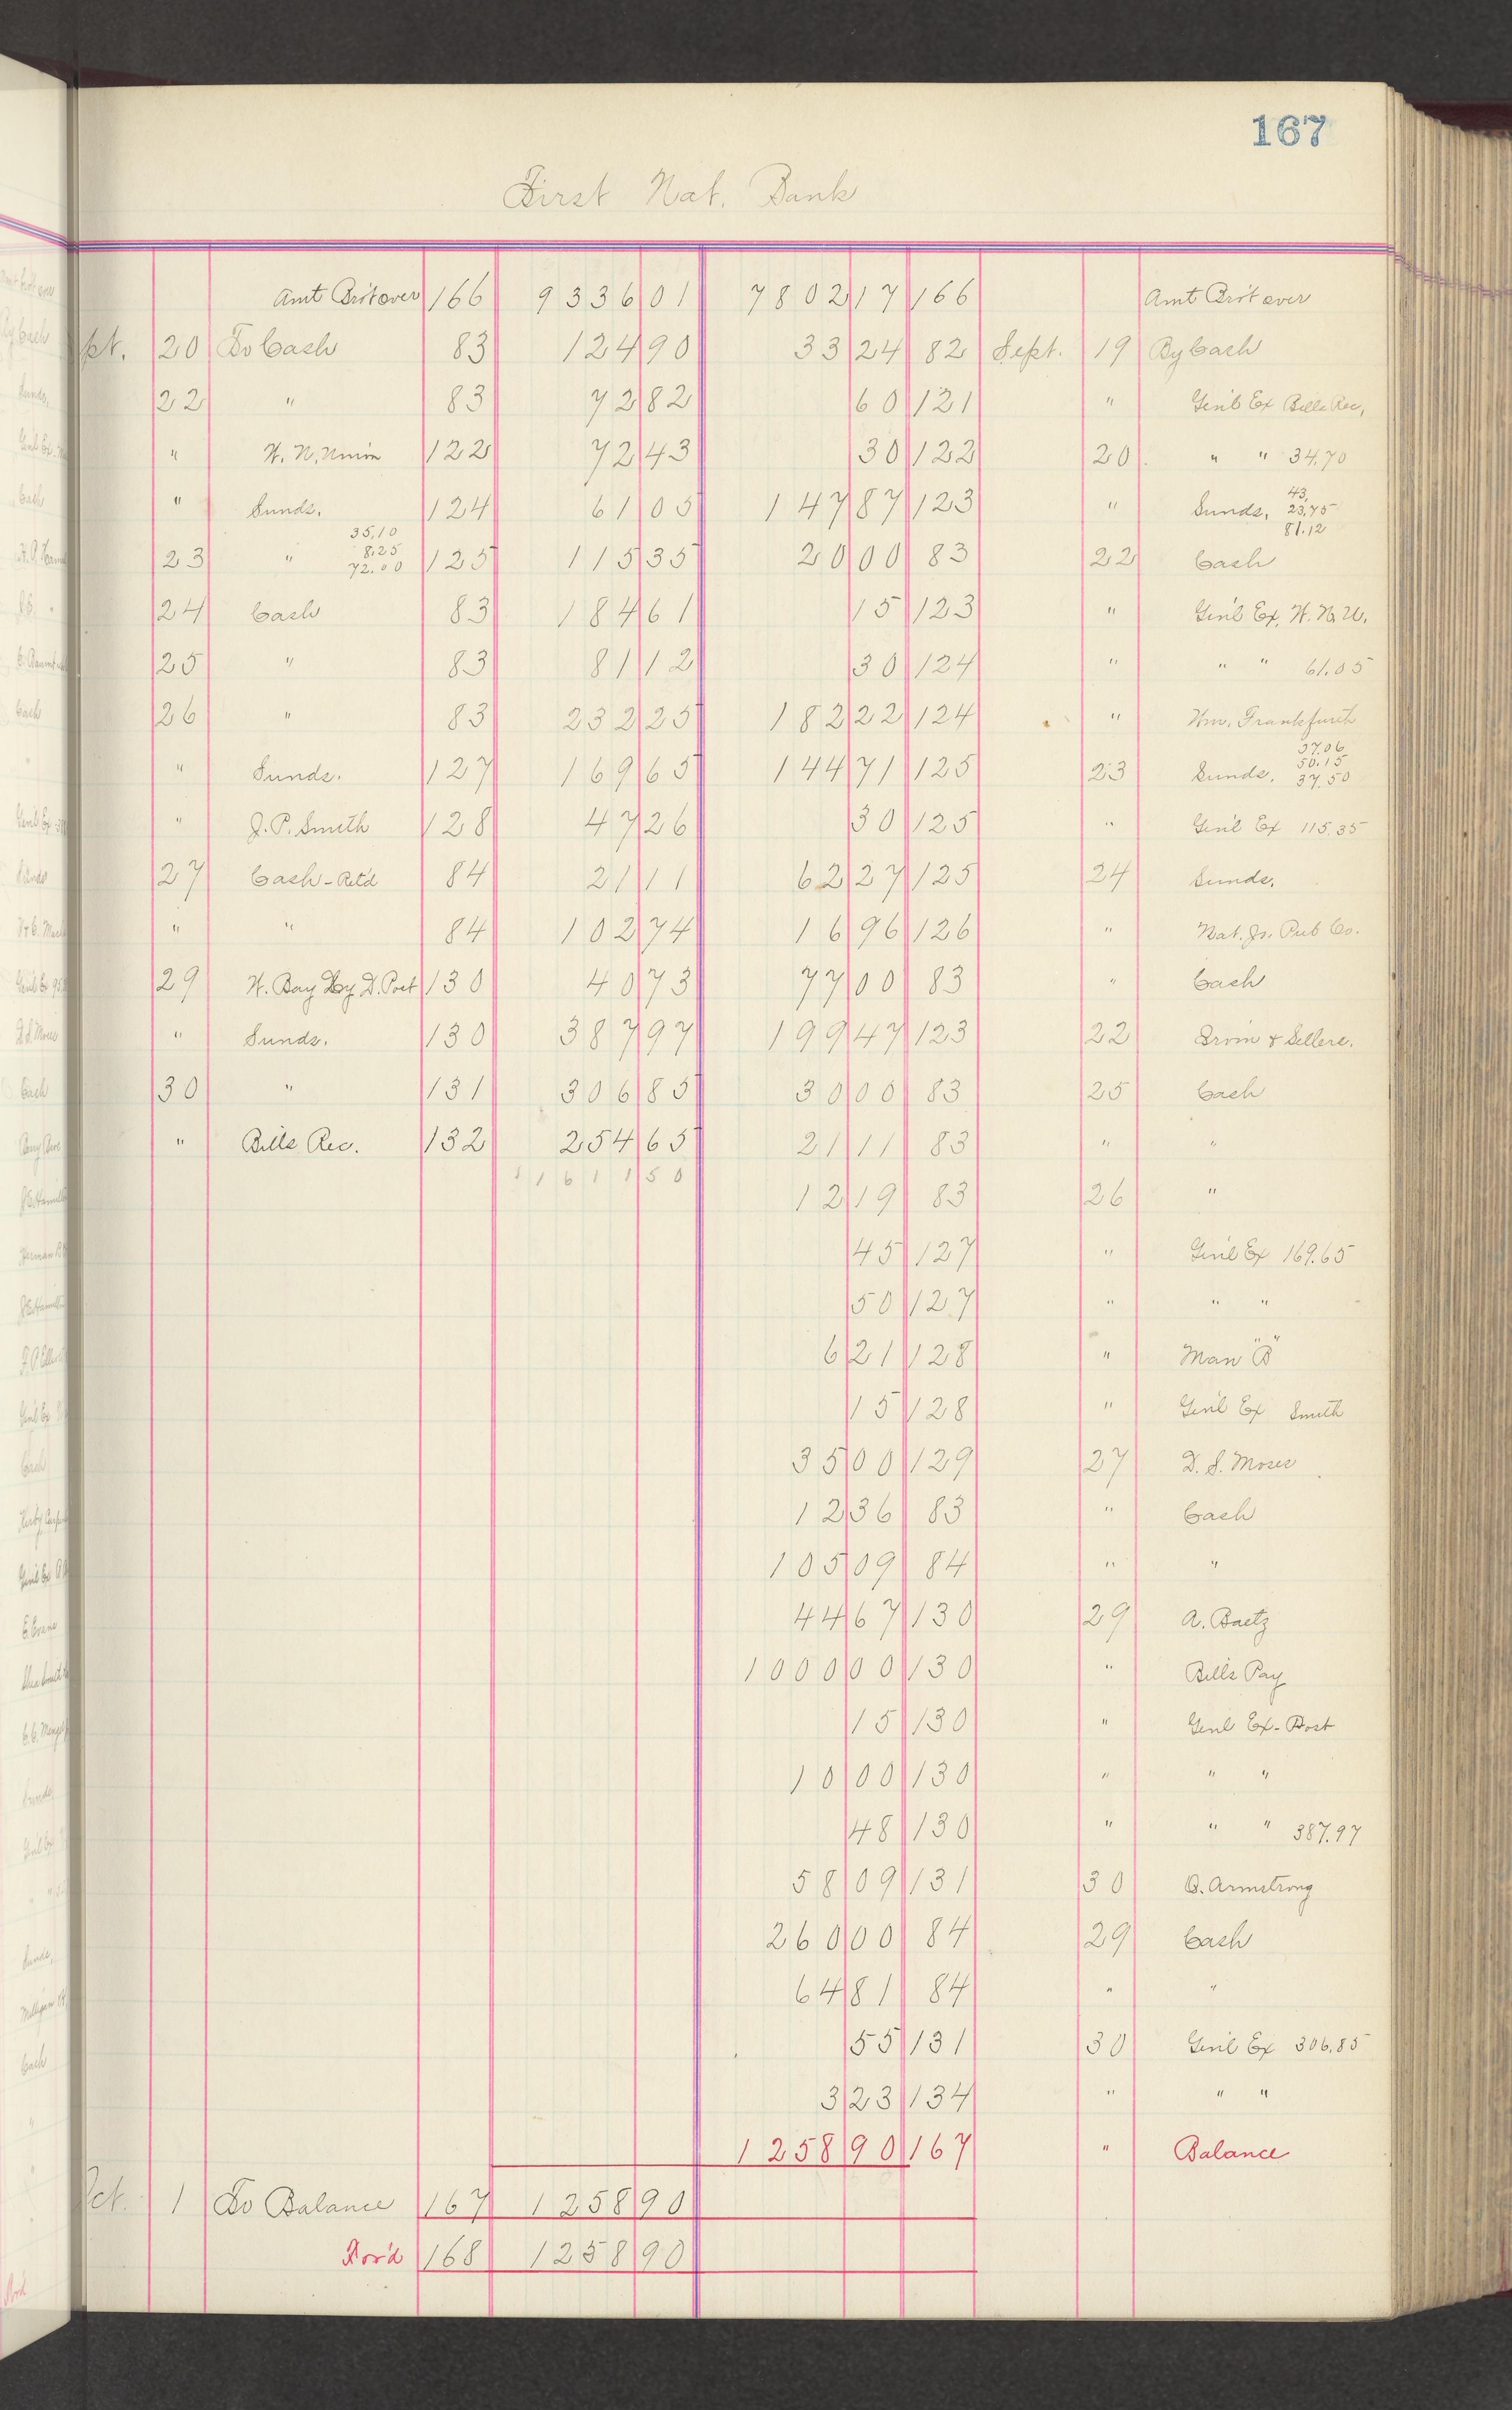 167
First Nat. Bank
Amt Brot over 166 9336 01 7802 17 166 Amt Brot over
pt. 20 To Cash 83 124 90 33 24 82 Sept. 19 By Cash
22 " 83 72 82 60 121 " Gen'l Ex Bills Rec,
" W. N. Union 122 72 43 30 122 20 " " 34.70
" Sunds. 124 61 05 147 87 123 " Sunds. 43, 23.75 81.12
23 " 35.10 8.25 72.00 125 115 35 20 00 83 22 Cash
24 Cash 83 184 61 15 123 " Gen'l Ex, W. N. U.
25 " 83 81 12 30 124 " " " 61.05
26 " 83 232 25 182 22 124 " Wm. Frankfurth
" Sunds. 127 169 65 144 71 125 23 Sunds. 57.06 50.15 37.50
" J. P. Smith 128 47 26 30 125 " Gen'l Ex 115.35
27 Cash - Ret'd 84 21 11 62 27 125 24 Sunds.
" " 84 102 74 16 96 126 " Nat. Jr. Pub Co.
29 W. Bay Cy D. Post 130 40 73 77 00 83 " Cash
" Sunds. 130 387 97 199 47 123 22 Ervin & Sellers.
30 " 131 306 85 30 00 83 25 Cash
" Bills Rec. 132 254 65 21 11 83 " "
11611 50
12 19 83 26 "
45 127 " Gen'l Ex 169.65
50 127 " " "
6 21 128 " Man "B"
15 128 " Gen'l Ex Smith
35 00 129 27 D. S. Moses
12 36 83 " Cash
105 09 84 " "
44 67 130 29 A. Baetz
1000 00 130 " Bills Pay
15 130 " Genl Ex - Post
10 00 130 " " "
48 130 " " " 387.97
58 09 131 30 O. Armstrong
260 00 84 29 Cash
64 81 84 " "
55 131 30 Gen'l Ex 306.85
3 23 134 " " "
1258 90 167 " Balance
Oct. 1 To Balance 167 1258 90
For'd 168 1258 90